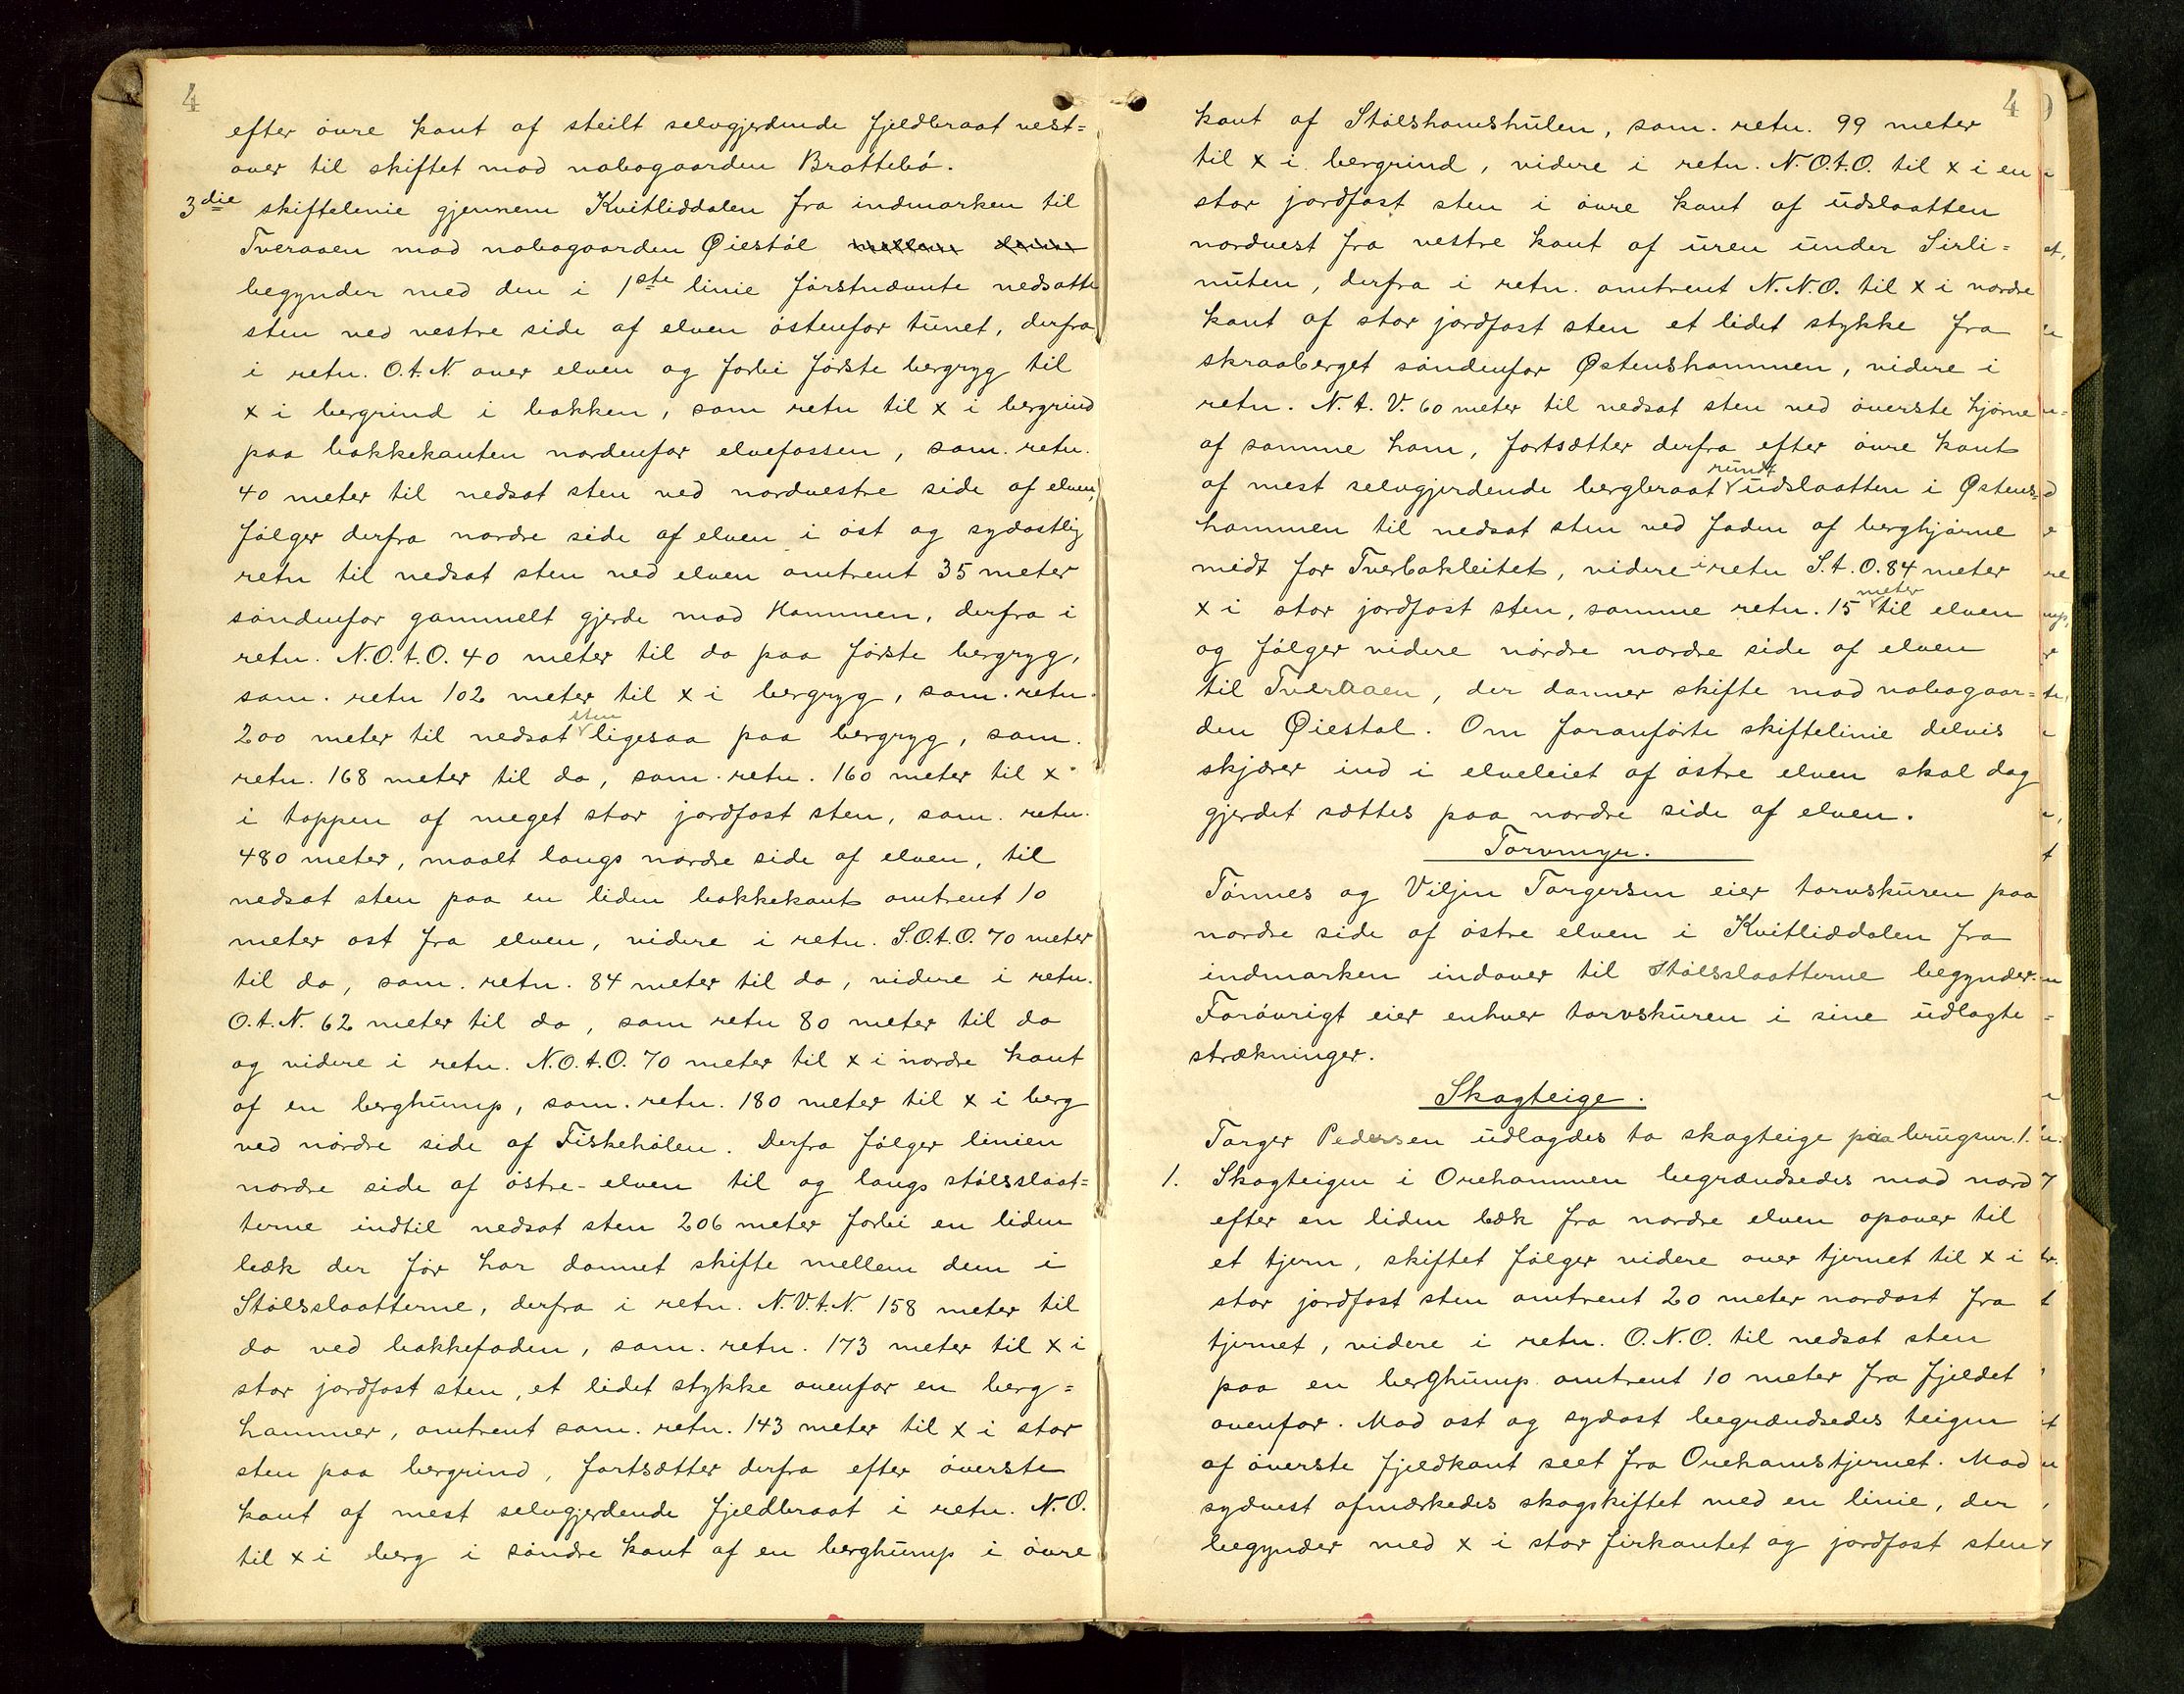 4
efter øvre kant af steilt selvgjerdende fjeldbraat vest=
over til skiftet mod nabogaarden Brattebø.
3die skiftelinie gjennem Kvitliddalen fra indmarken til
Tveraaen mod nabogaarden Øiestøl
begynder med den i 1ste linie førstnævnte nedsatte
sten ved vestre side af elven østenfor tunet, derfra
i retn. O.t.N. over elven og forbi første bergryg til
x i bergrind i bakken, sam retn til x i bergrind
paa bakkekanten nordenfor elvefossen, sam. retn.
40 meter til nedsat sten ved nordvestre side af elven,
følger derfra nordre side af elven i øst og sydøstlig
retn til nedsat sten ved elven omtrent 35 meter
søndenfor gammelt gjerde mod Hammen, derfra i
retn. N.O.t.O. 40 meter til do paa første bergryg,
sam. retn 102 meter til x i bergryg, sam. retn.
200 meter til nedsat sten ligesaa paa bergryg, sam.
retn. 168 meter til do, sam. retn. 160 meter til x
i toppen af meget stor jordfast sten, sam. retn.
480 meter, maalt langs nordre side af elven, til
nedsat sten paa en liden bakkekant omtrent 10
meter øst fra elven, videre i retn. S.O.t.O. 70 meter
til do, sam. retn. 84 meter til do, videre i retn.
O.t.N. 62 meter til do, sam retn 80 meter til do
og videre i retn. N.O.t.O. 70 meter til x i nordre kant
af en berghump, sam. retn. 180 meter til x i berg
ved nordre side af Fiskehølen. Derfra følger linien
nordre side af østre-elven til og langs stølsslaat=
terne indtil nedsat sten 206 meter forbi en liden
bæk der før har dannet skifte mellem dem i
Stølsslaatterne, derfra i retn. N.V.t.N. 158 meter til
do ved bakkefoden, sam. retn. 173 meter til x i
stor jordfast sten, et lidet stykke ovenfor en berg=
hammer, omtrent sam. retn. 143 meter til x i stor
sten paa bergrind, fortsætter derfra efter øverste
kant af mest selvgjerdende fjeldbraat i retn. N.O.
til x i berg i søndre kant af en berghump i øvre
4
kant af Stølshamshulen, sam. retn. 99 meter
til x i bergrind, videre i retn. N.O.t.O. til x i en
stor jordfast sten i øvre kant af udslaatten
nordvest fra vestre kant af uren under Sirli=
nuten, derfra i retn. omtrent N.N.O. til x i nordre
kant af stor jordfast sten et lidet stykke fra
skraaberget søndenfor Østenshammen, videre i
retn. N.t.V. 60 meter til nedsat sten ved øverste hjørne
af samme ham, fortsætter derfra efter øvre kant
af mest selvgjerdende bergbraat rundt udslaatten i Østens=
hammen til nedsat sten ved foden af berghjørne
midt for Tverbakleitet, videre i retn S.t.O. 84 meter
x i stor jordfast sten, samme retn. 15 meter til elven
og følger videre nordre nordre side af elven
til Tveraaen, der danner skifte mod nabogaar=
den Øiestøl. Om foranførte skiftelinie delvis
skjærer ind i elveleiet af østre elven skal dog
gjerdet sættes paa nordre side af elven.
Torvmyr.
Tønnes og Viljen Torgersen eier torvskuren paa
nordre side af østre elven i Kvitliddalen fra
indmarken indover til Stølsslaatterne begynder.
Forøvrigt eier enhver torvskuren i sine udlagte
strækninger.
Skogteige.
Torger Pedersen udlagdes to skogteige paa brugsnr. 1.
1. Skogteigen i Orehammen begrændsedes mod nord
efter en liden bæk fra nordre elven opover til
et tjern, skiftet følger videre over tjernet til x i
stor jordfast sten omtrent 20 meter nordøst fra
tjernet, videre i retn. O.N.O. til nedsat sten
paa en berghump omtrent 10 meter fra fjeldet
ovenfor. Mod øst og sydøst begrændsedes teigen
af øverste fjeldkant seet fra Orehamstjernet. Mod
sydvest afmærkedes skogskiftet med en linie, der
begynder med x i stor firkantet og jordfast sten